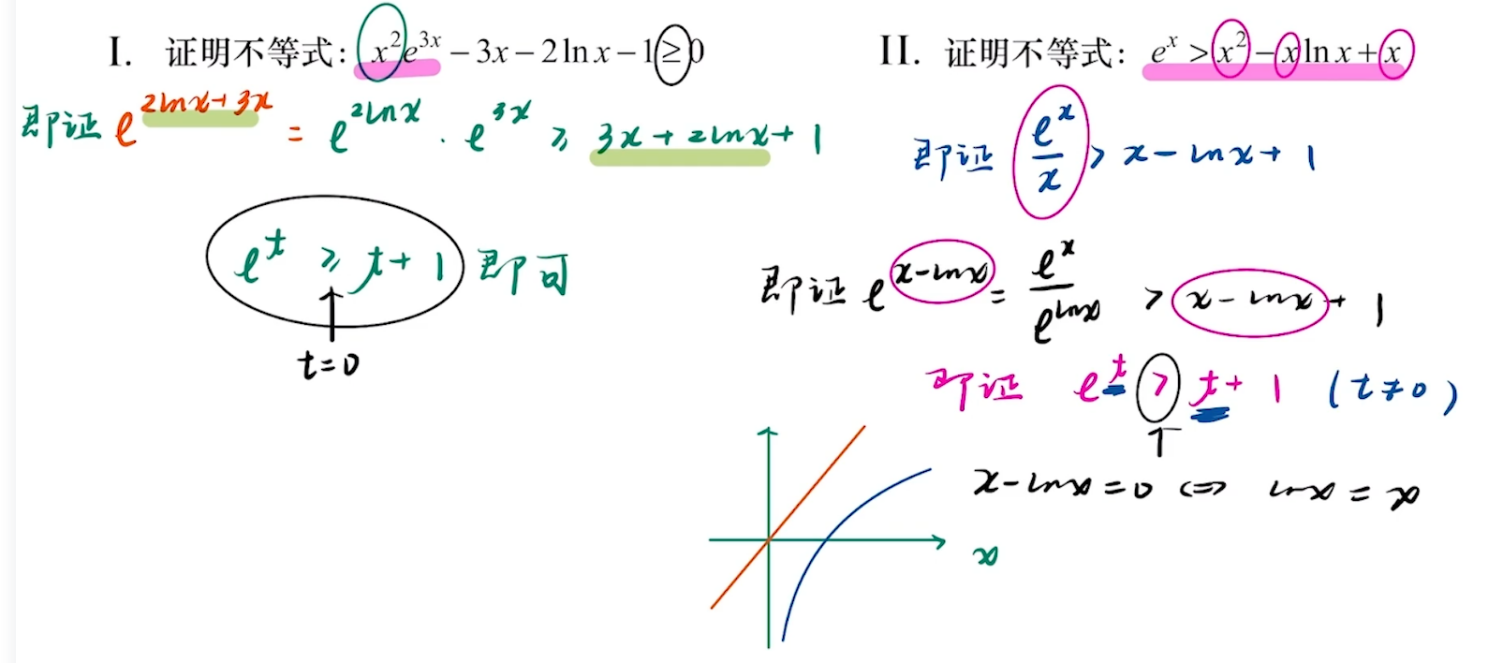 I. 证明不等式：x²e³ˣ − 3x − 2ln x − 1 ≥ 0
即证 e^{2lnx+3x} = e^{2lnx} · e^{3x} ≥ 3x + 2lnx + 1
e^t ≥ t + 1 即可
↑
t=0
II. 证明不等式：eˣ > x² − x ln x + x
即证 e^x/x > x − lnx + 1
即证 e^{x−lnx} = e^x/e^{lnx} > x − lnx + 1
即证 e^t > t + 1 (t≠0)
↑
x−lnx=0 ⇔ lnx = x
x